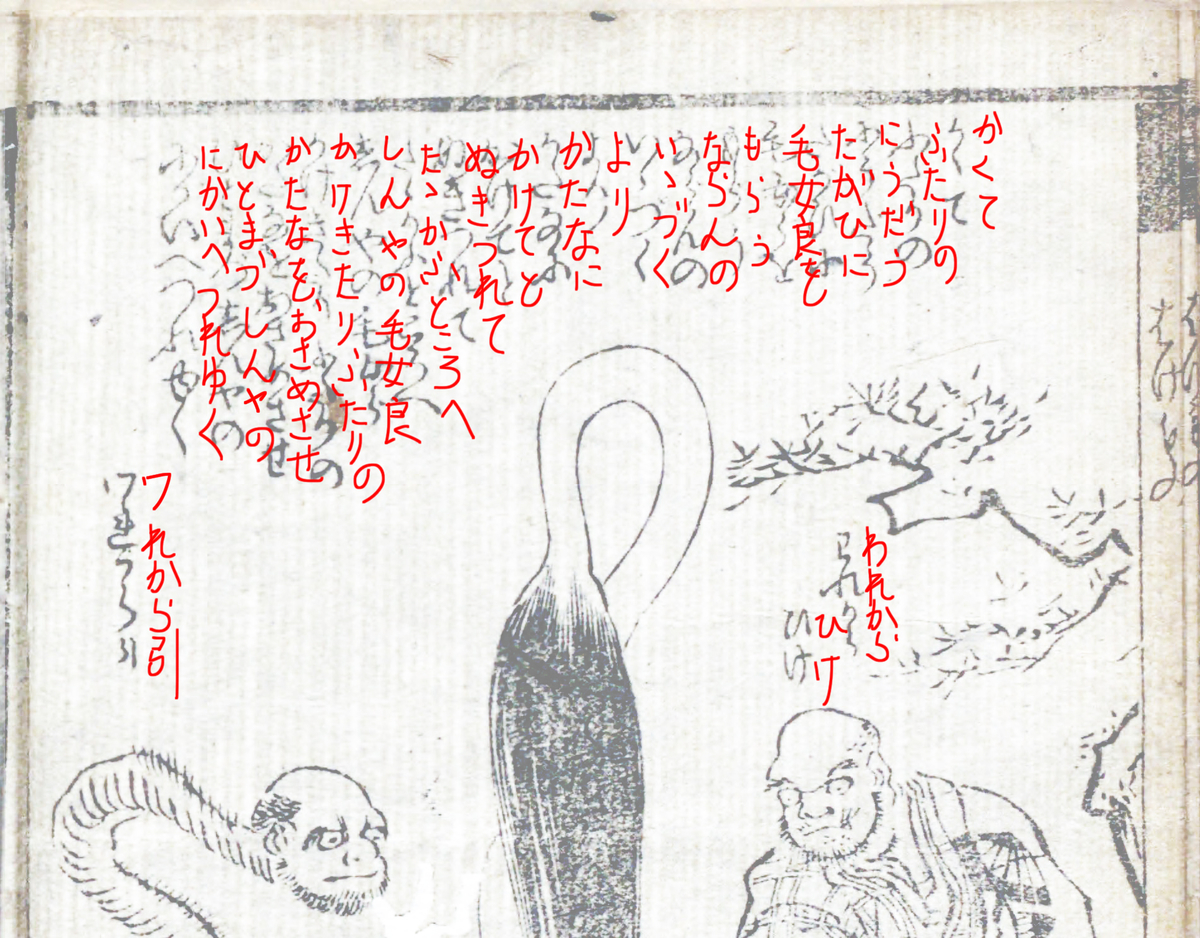 かくて
ふたりの
にうだう
たがひに
毛女良を
もらう
ならんの
いゝづく
より
かたなに
かけてと
ぬきつれて
たゝかふところへ
しんやの毛女良
かけきたりふたりの
かたなをおさめさせ
ひとまづしんやの
にかいへつれゆく
われから
ひけ
ワれから引